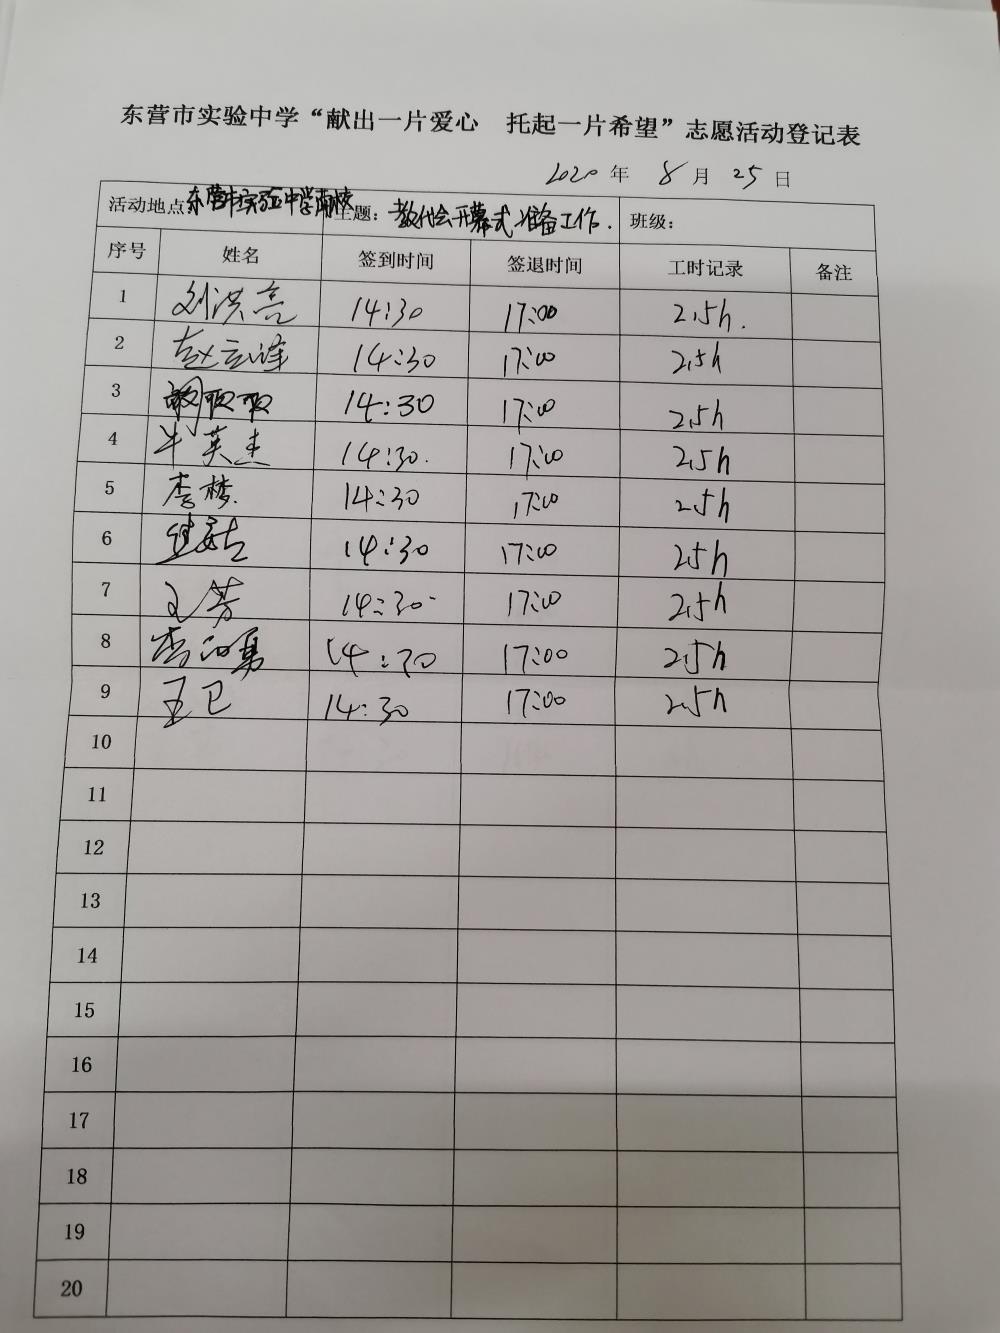 东营市实验中学“献出一片爱心 托起一片希望”志愿活动登记表
2020 年 8 月 25 日
活动地点 东营市实验中学南校 主题: 教代会开幕式准备工作. 班级:
序号 姓名 签到时间 签退时间 工时记录 备注
1 刘洪亮 14:30 17:00 2.5h.
2 赵云峰 14:30 17:00 2.5h
3 14:30 17:00 2.5h
4 牛英杰 14:30. 17:00 2.5h
5 李梦. 14:30 17:00 2.5h
6 14:30 17:00 2.5h
7 王芳 14:30 17:00 2.5h
8 14:30 17:00 2.5h
9 王卫 14:30 17:00 2.5h
10
11
12
13
14
15
16
17
18
19
20